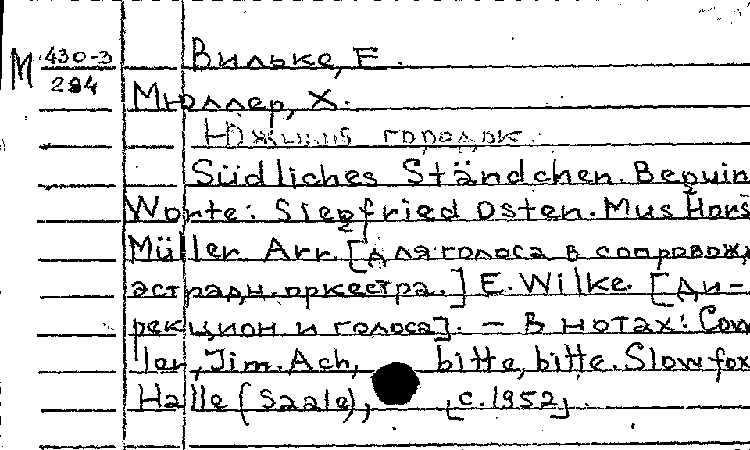 М 430-3 Вильке, Е.
284
Мюллер, Х.
Южный городок.
Südliches Ständchen. Beguin
Worte: Siegfried Osten. Mus Hors
Müller. Arr. [для голоса в сопровожд
эстрадн. оркестра.] E. Wilke. [Ди-
рекцион и голоса]. – В нотах: Con
ller, Jim. Ach, bitte, bitte. Slowfox
Halle (Saale), [c. 1952].